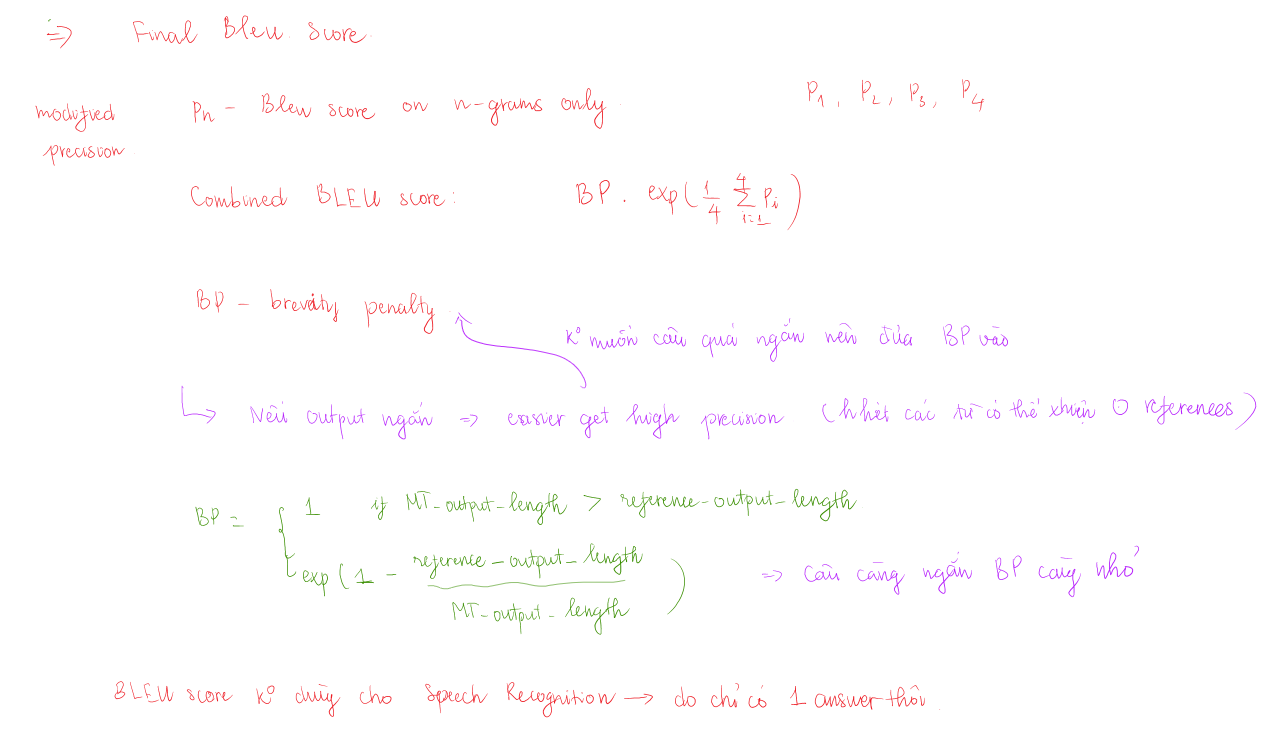 => Final Bleu Score
modified precision
Pn - Bleu score on n-grams only
P1, P2, P3, P4
Combined BLEU score: BP . exp(1/4 4∑i=1 Pi)
BP - brevity penalty
K° muốn câu quá ngắn nên đưa BP vào
↳ Nếu output ngắn => easier get high precision (hhết các từ có thể xhiện ở references)
BP = { 1 if MT-output-length > reference-output-length
exp(1 - reference-output-length / MT-output-length) => câu càng ngắn BP càng nhỏ
BLEU score K° dùng cho Speech Recognition → do chỉ có 1 answer thôi